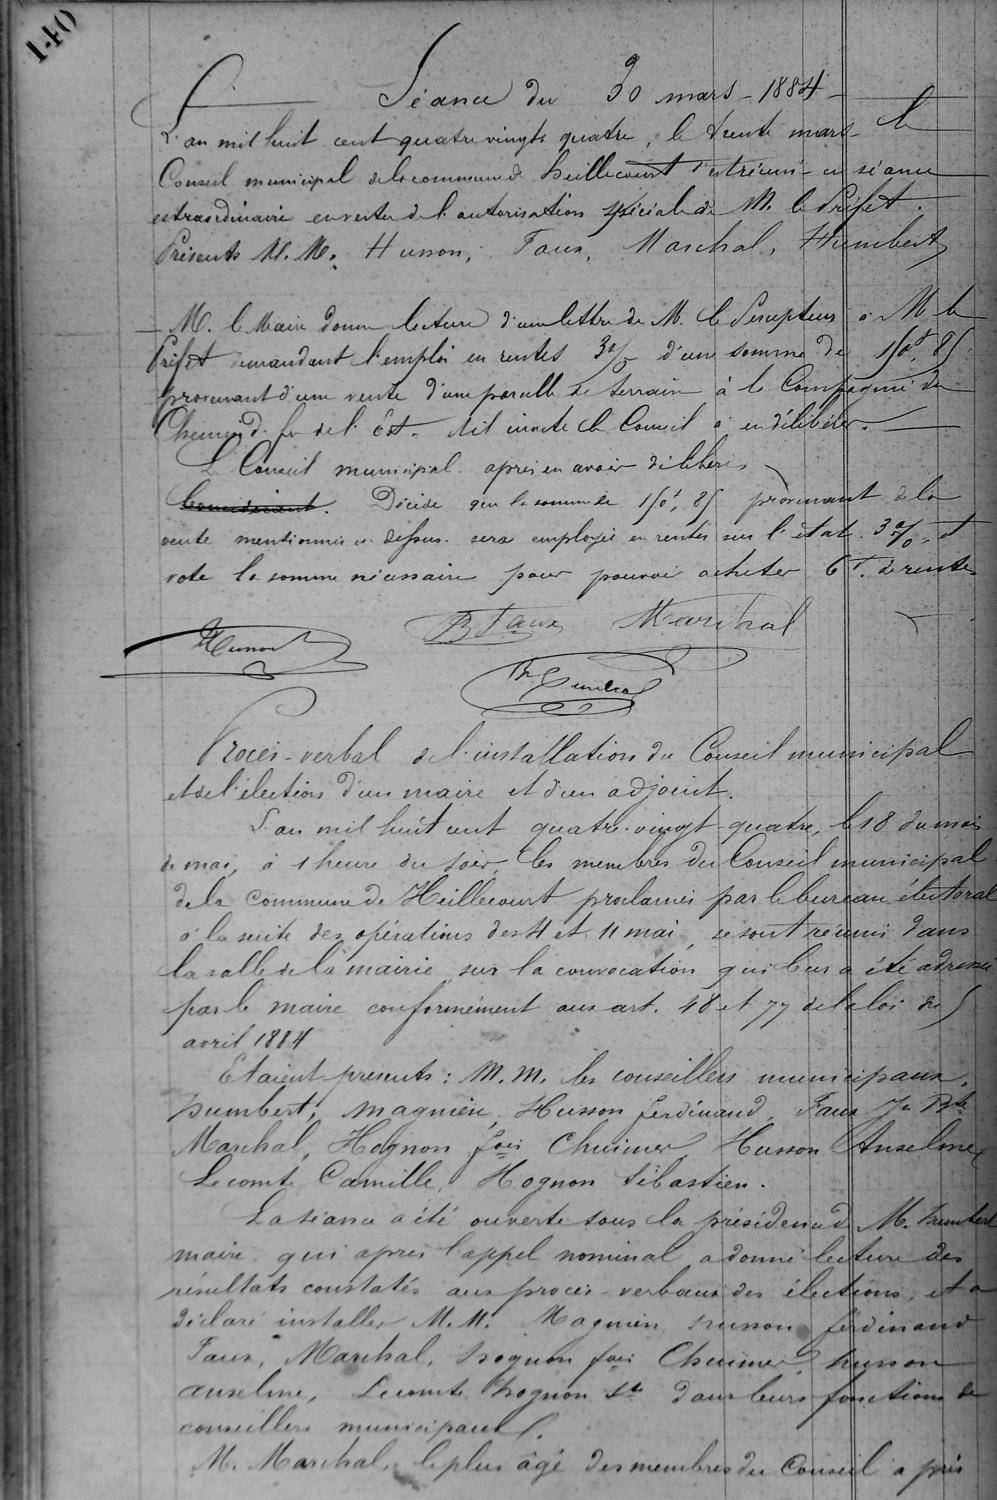 140
Séance du 30 mars - 1884 -
L'an mil huit cent quatre vingts quatre, le trente mars le
Conseil municipal de la commune de Heillecourt s'est réuni en séance
extraordinaire en vertu de l'autorisation spéciale de M. le Préfet.
Présents M. M. Husson, Faux, Marchal, Humbert
M. le Maire donne lecture d'une lettre de M. le Percepteur à M le
Préfet demandant l'emploi en rentes 3% d'une somme de 150f, 85
provenant d'une vente d'une parcelle de terrain à la Compagnie de
Chemin de fer de l'Est. et invite le Conseil à en délibérer.
Le Conseil municipal après en avoir délibéré,
Considérant. Décide que la somme de 150f, 85 provenant de la
vente mentionnée ci-dessus sera employée en rentes sur l'état 3% et
vote la somme nécessaire pour pouvoir acheter 6f. de rente
Husson Bte Faux Marchal
Humbert
Procès-verbal de l'installation du Conseil municipal
et de l'élection d'un maire et d'un adjoint.
L'an mil huit cent quatre-vingt-quatre, le 18 du mois
de mai, à 1 heure du soir, les membres du Conseil municipal
de la commune de Heillecourt proclamés par le bureau électoral
à la suite des opérations des 4 et 11 mai, se sont réunis dans
la salle de la mairie, sur la convocation qui leur a été adressée
par le maire conformément aux art. 48 et 77 de la loi du 5
avril 1884
Etaient présents : M. M. les conseillers municipaux,
Humbert, Magnien, Husson ferdinand, Faux Jn Bte
Marchal, Hognon fois Chuimer, Husson Anselme,
Lecomte Camille, Hognon Sébastien.
La séance a été ouverte sous la présidence de M. Humbert
maire qui après l'appel nominal a donné lecture des
résultats constatés aux procès-verbaux des élections, et a
déclaré installer M. M. Magnien husson ferdinand
Faux, Marchal, hognon fois Chuimer, husson
anselme, Lecomte hognon Sn dans leurs fonctions de
conseillers municipaux.
M. Marchal, le plus âgé des membres du Conseil a pris